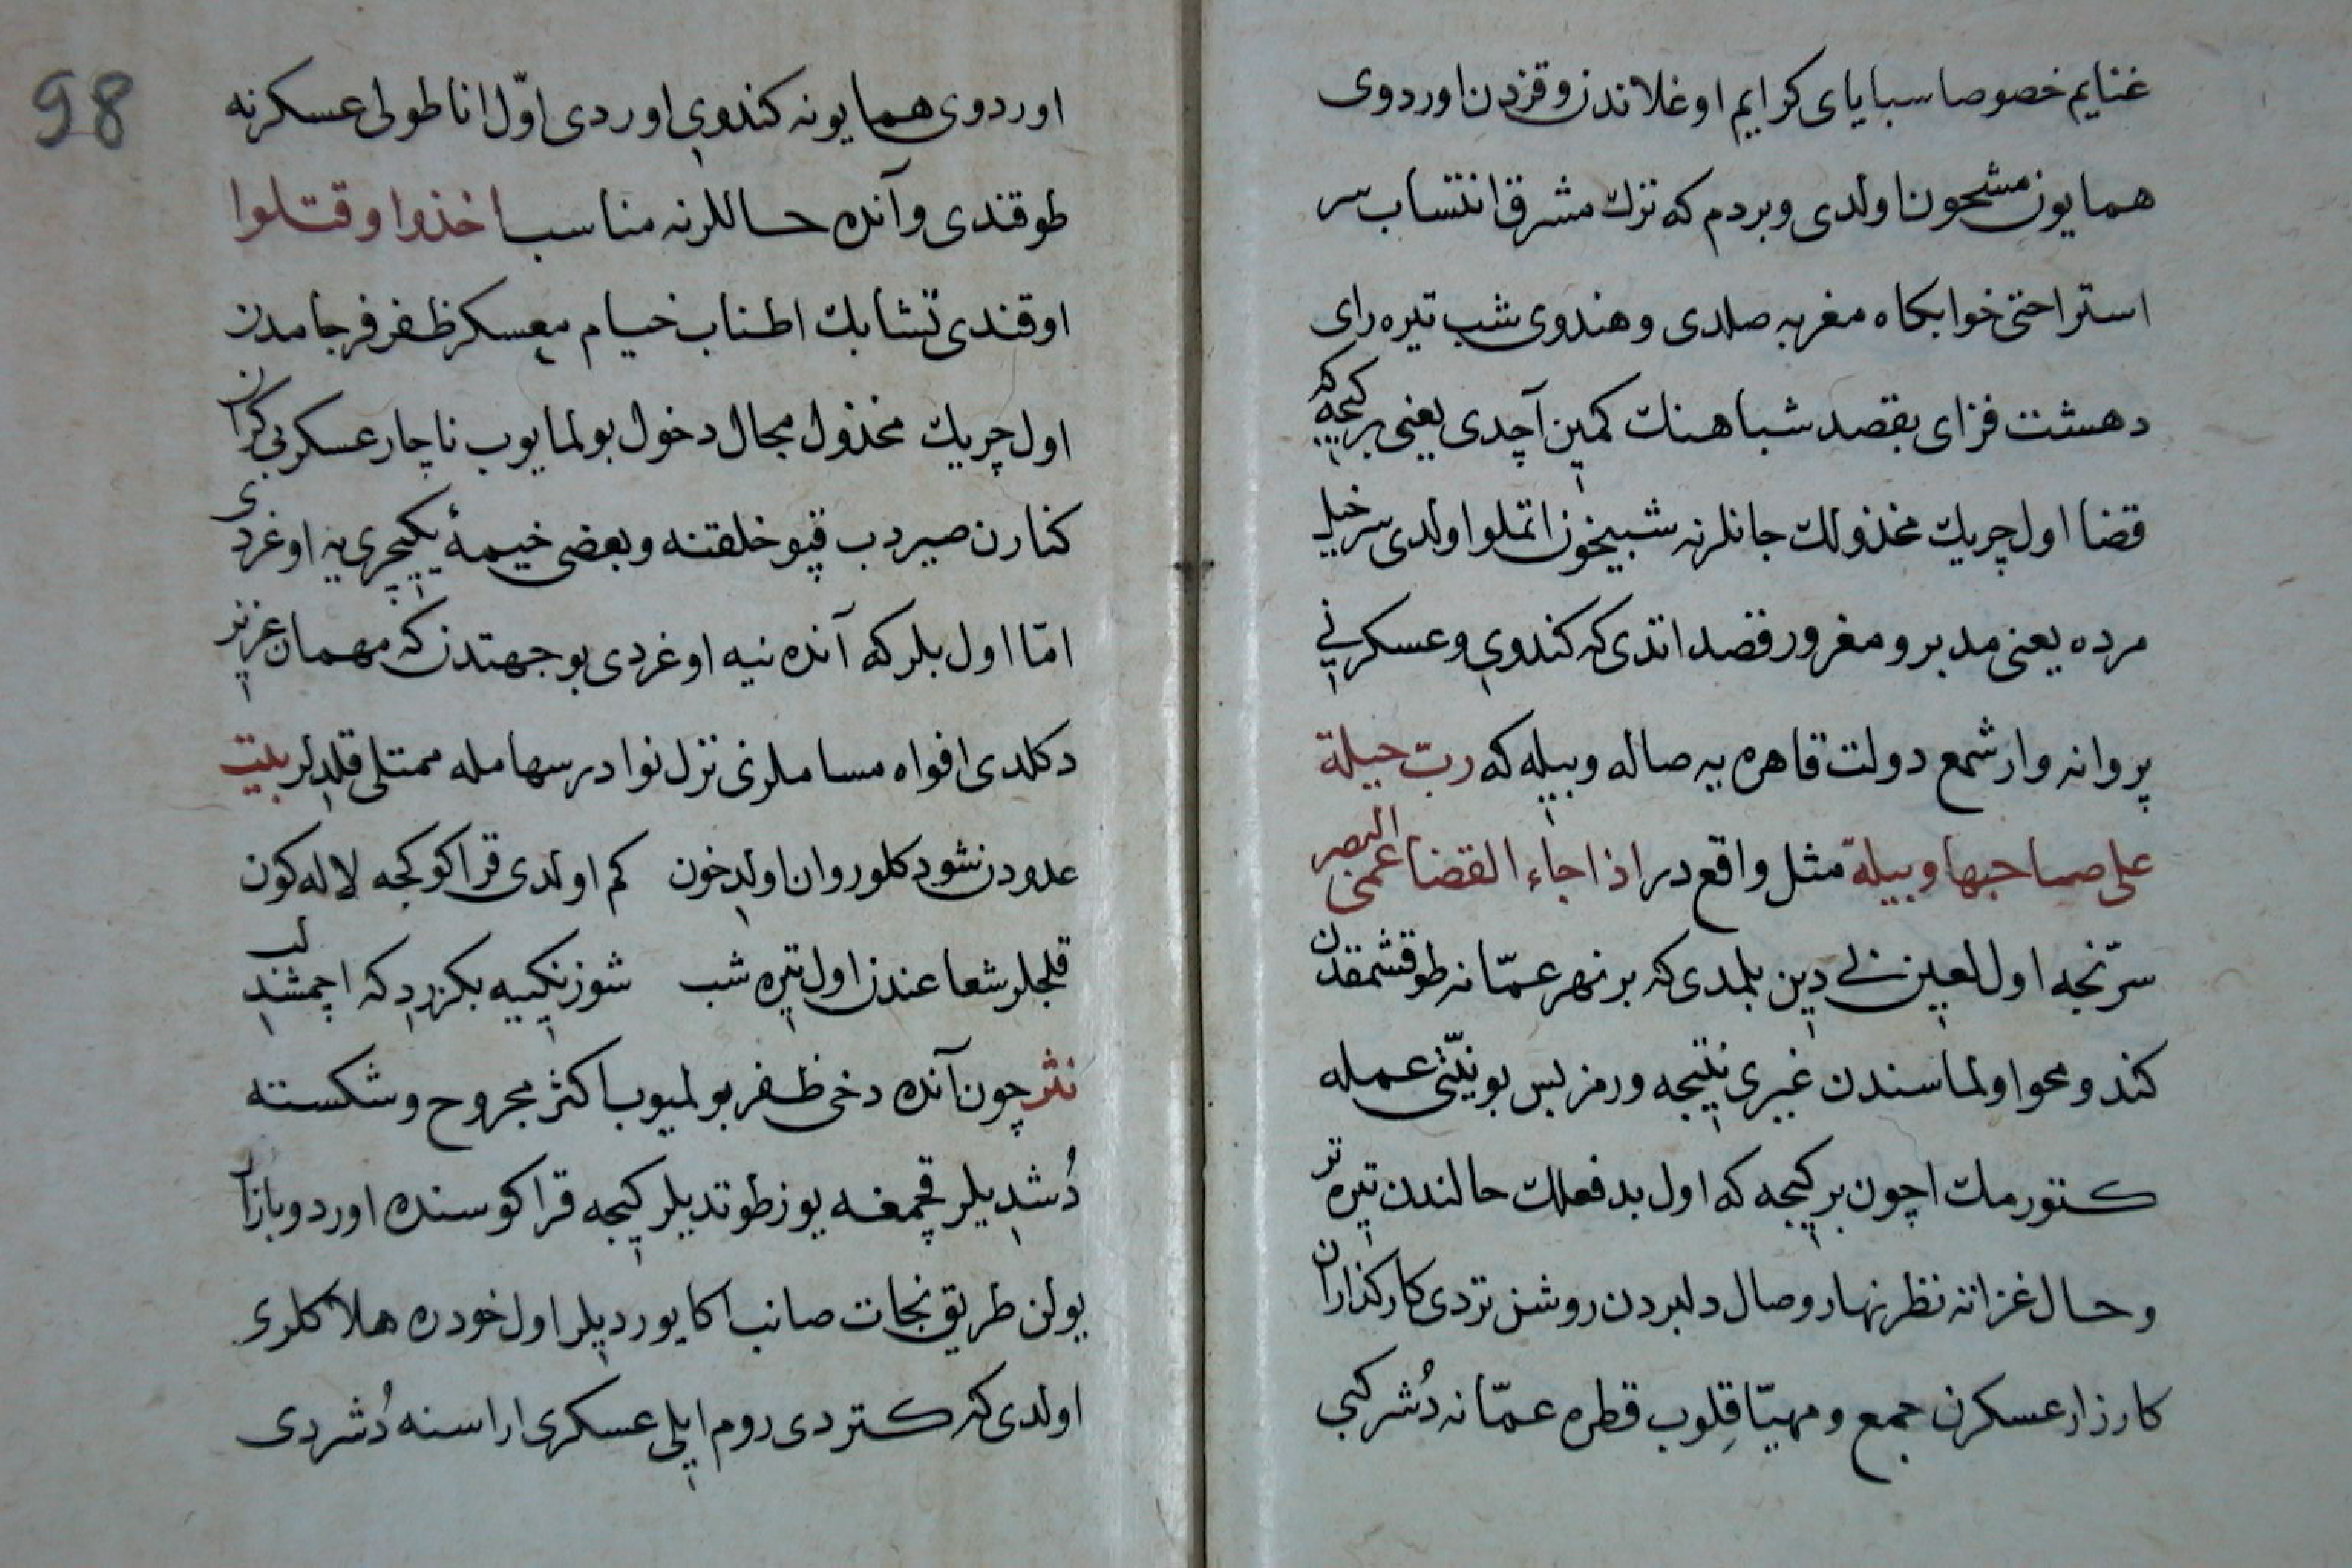 غنايم خصوصا سباياى كرايم اوغلاندن وقزدن اوردوى
همايون مشحون اولدى وبردم كه ترك مشرق انتساب سر
استراحتى خوابكاه مغربه صلدى وهندوى شب تيره راى
دهشت فزاى بقصد شباهنك كمين آچدى يعنى بر كيجه كه
قضا اول چريك مخذولك جانلرنه شبيخون اتملو اولدى سرخيل
مرده يعنى مدبر ومغرور قصد اتدى كه كندوى وعسكرنى
پروانه وار شمع دولت قاهره يه صاله وبيله كه رب حيلة
على صاحبها وبيلة مثل واقع در اذا جاء القضا عمى البصر
سرّنجه اول لعين بى دين بلمدى كه بر نهر عمّانه طوقشمقدن
كندو محو اولماسندن غيرى نتيجه ورمز پس بو نيّتى عمله
كتورمك اچون بر كيجه كه اول بدفعلك حالندن تيره تر
وحال غزاته نظر نهار وصال دلبردن روشن تردى كاركذاران
كارزار عسكرن جمع ومهيّا قِلوب قطره عمّانه دُشر كبى
98
اوردوى همايونه كندوى اوردى اوّل اناطولى عسكرنه
طوقندى وآنده حاللرنه مناسب اخذوا وقتلوا
اوقندى تشابك اطناب خيام معسكر ظفر فرجامدن
اول چريك مخذول مجال دخول بولمايوب ناچار عسكر بى كران
كنارن صيردب قپو خلقنه وبعضى خيمهٔ يكيچرى يه اوغردى
امّا اول بلر كه آنده نيه اوغردى بو جهتدن كه مهمان عزيز
دكلدى افواه مساملرنى نزل نوادر سهامله ممتلى قلديلر بيت
عدودن شو دكلو روان اولد خون   كم اولدى قراكو كجه لاله كون
قلجلر شعاعندن اول تيره شب   شو زنكييه بكزرد كه اچمشدى لب
نثر چون آنده دخى ظفر بولميوب اكثر مجروح وشكسته
دُشديلر قچمغه يوز طوتديلر كيجه قراكوسنده اوردو بازار
يولن طريق نجات صانب اكا يورديلر اول خود ره هلاكلرى
اولدى كه كستردى روم ايلى عسكرى اراسنه دُشردى